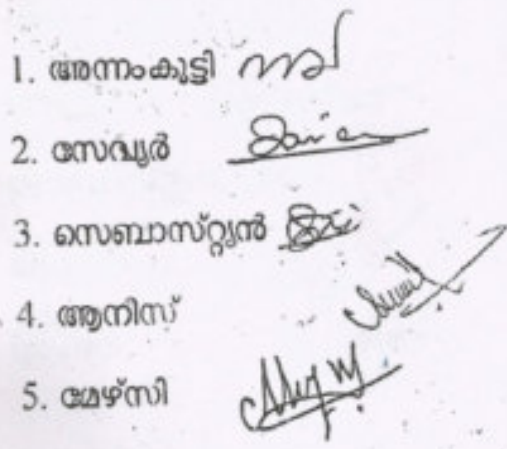 1. അന്നംകുട്ടി
2. സേവ്യർ
3. സെബാസ്റ്റ്യൻ
4. ആനിസ്
5. മേഴ്സി